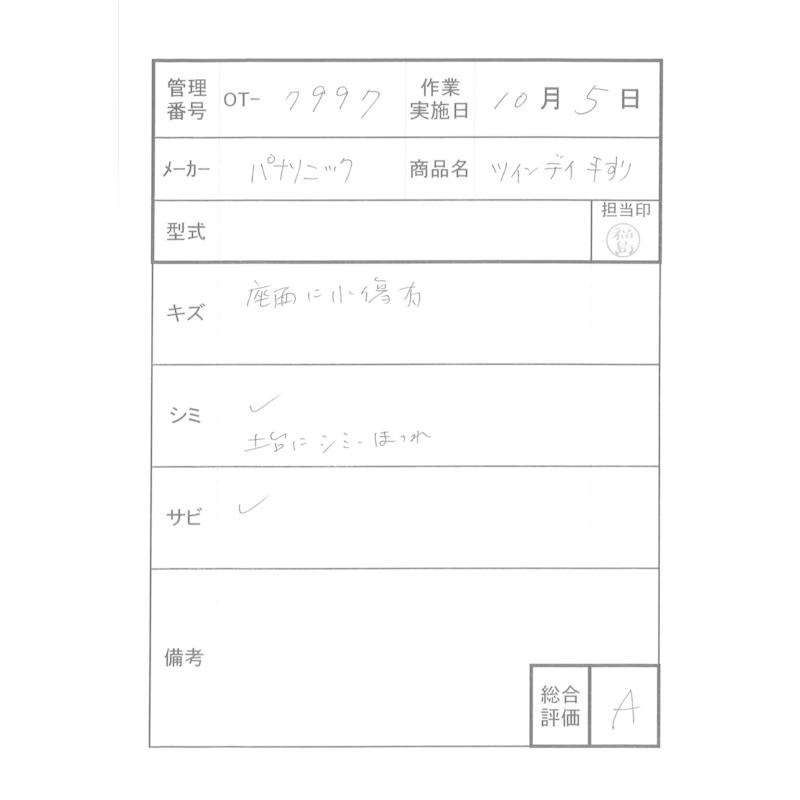 管理番号 OT- 7997 作業実施日 10月5日
メーカー パナソニック 商品名 ツインデイ手すり
型式 担当印 福島
キズ 座面に小傷有
シミ ✓
土台にシミ、ほつれ
サビ ✓
備考
総合評価 A